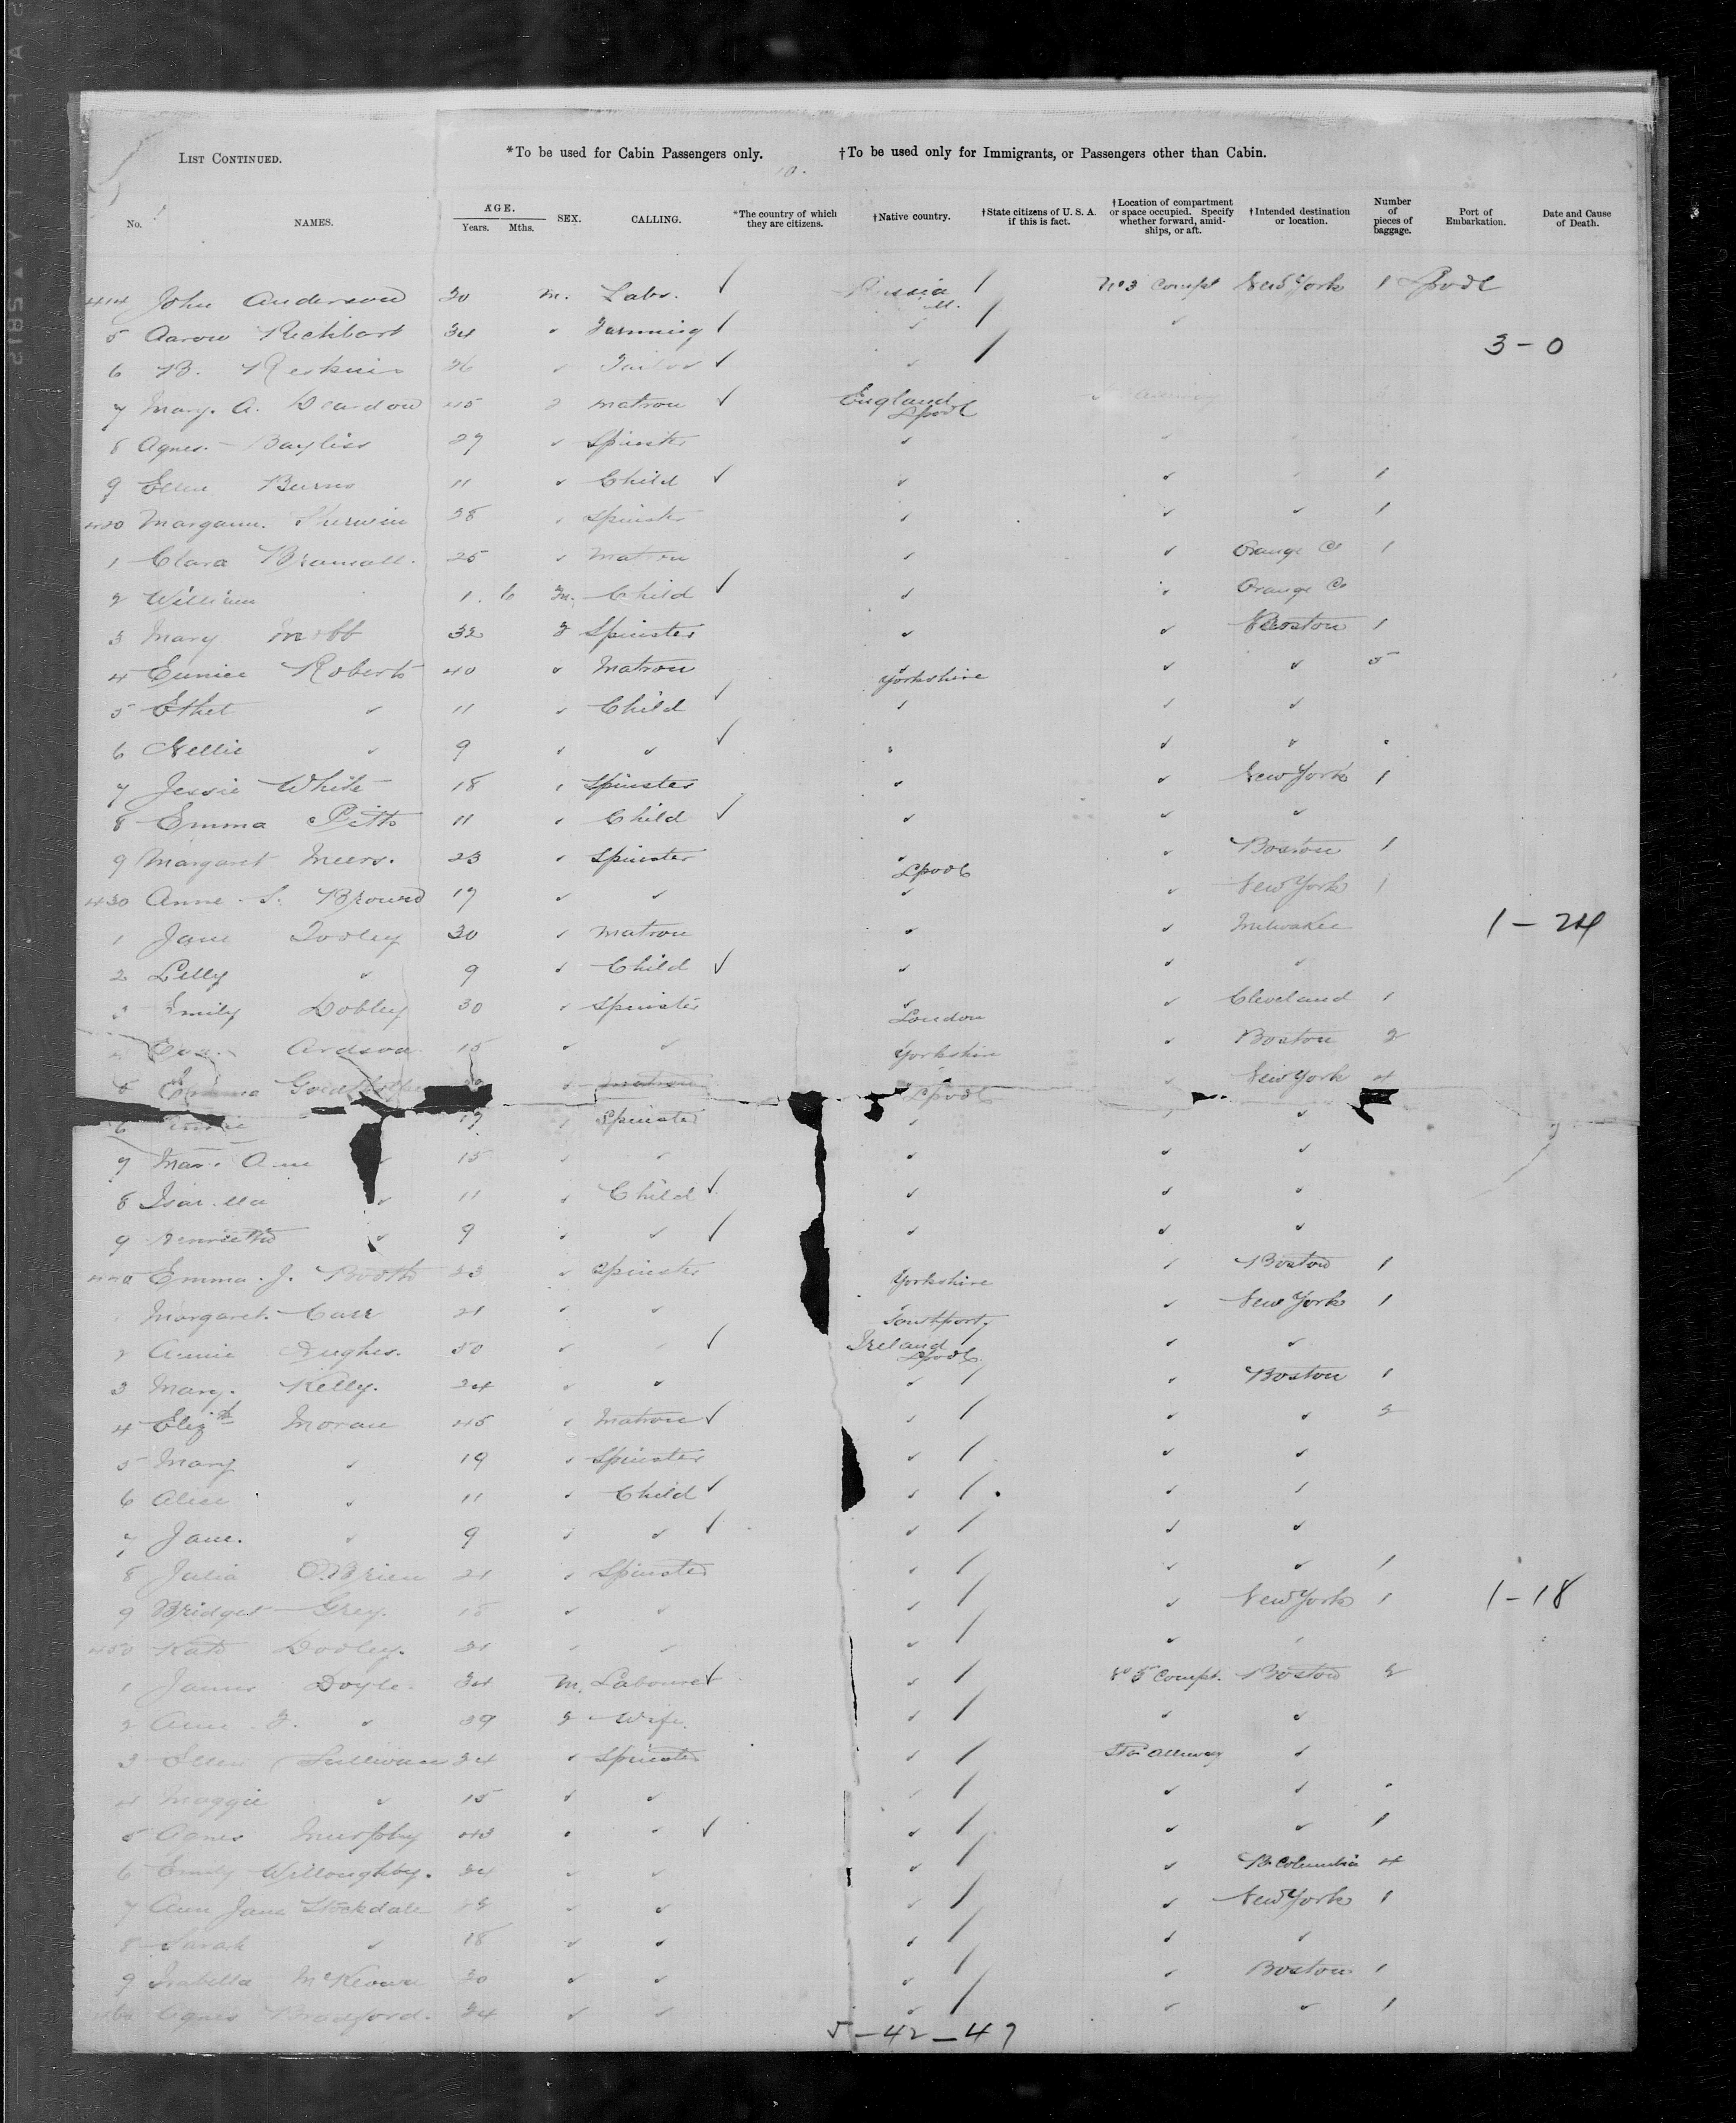 LIST CONTINUED. *To be used for Cabin Passengers only. †To be used only for Immigrants, or Passengers other than Cabin.
No. NAMES. AGE. Years. Mths. SEX. CALLING. *The country of which they are citizens. †Native country. †State citizens of U. S. A. if this is fact. †Location of compartment or space occupied. Specify whether forward, amidships, or aft. †Intended destination or location. Number of pieces of baggage. Port of Embarkation. Date and Cause of Death.
414 John Anderson 30 M. Labr. ✓ Russia / No 3 Compt New York 1 Lpool
5 Aaron 34 ✓ Farming ✓ ✓ / ✓
3-0
6 B. 26 ✓ Tailor ✓ ✓ /
7 Mary. A. Deardon 45 F Matron ✓ England Lpool
8 Agnes. Bayliss 27 ✓ Spinster ✓
9 Ellen Burns 11 ✓ Child ✓ ✓ ✓ 1
420 Margann. Sherwin 28 Spinster ✓ ✓ ✓ 1
1 Clara Bramall. 25 ✓ Matron ✓ ✓ Orange Co 1
2 William 1. 6 M. Child ✓ ✓ ✓ Orange Co
3 Mary 32 F Spinster ✓ ✓ Boston 1
4 Eunice Roberts 40 ✓ Matron Yorkshire ✓ ✓ 5
5 Ethel ✓ 11 ✓ Child ✓ ✓ ✓ ✓
6 Nellie ✓ 9 ✓ ✓ ✓ ✓ ✓ ✓
7 Jessie White 18 ✓ Spinster ✓ ✓ New York 1
8 Emma Pitts 11 ✓ Child ✓ ✓ ✓ ✓
9 Margaret Meers. 23 ✓ Spinster Lpool ✓ Boston 1
430 Anne. S. Brown 19 ✓ ✓ ✓ ✓ New York 1
1 Jane Dooley 30 ✓ Matron ✓ ✓ Milwakee
1-24
2 Lilly ✓ 9 ✓ Child ✓ ✓ ✓ ✓
3 Emily Dobley 30 ✓ Spinster London ✓ Cleveland 1
4 15 ✓ ✓ Yorkshire ✓ Boston 2
5 Emma ✓ Matron Lpool New York 4
6 19 Spinster ✓ ✓
7 Mary Ann ✓ 15 ✓ ✓ ✓ ✓ ✓
8 Isabella ✓ 11 ✓ Child ✓ ✓ ✓ ✓
9 Henrietta ✓ 9 ✓ ✓ ✓ ✓ ✓ ✓
440 Emma. J. Booth 23 ✓ Spinster Yorkshire ✓ Boston 1
Margaret. Carr 21 ✓ ✓ Southport ✓ New York 1
2 Annie Hughes. 50 ✓ ✓ ✓ Ireland Lpool / ✓ ✓
3 Mary. Kelly. 24 ✓ ✓ ✓ / ✓ Boston 1
4 Elizth Moran 45 ✓ Matron ✓ ✓ / ✓ ✓ 2
5 Mary ✓ 19 ✓ Spinster ✓ / ✓ ✓
6 Alice ✓ 11 ✓ Child ✓ ✓ / ✓ ✓
7 Jane. ✓ 9 ✓ ✓ ✓ ✓ / ✓ ✓
8 Julia O.Brien 21 ✓ Spinster ✓ / ✓ ✓ 1
9 Bridget Grey. 18 ✓ ✓ ✓ / ✓ New York 1
1-18
450 Kate Dooley. 21 ✓ ✓ ✓ / ✓ ✓
1 James Doyle. 34 M. Labourer ✓ ✓ / No 5 Compt. Boston 2
2 Ann. F. ✓ 29 F Wife. ✓ / ✓ ✓
3 Ellen Sullivan 24 ✓ Spinster ✓ / Alleway ✓
4 Maggie ✓ 15 ✓ ✓ ✓ / ✓ ✓ ✓
5 Agnes Murphy 43 ✓ ✓ ✓ ✓ / ✓ ✓ 1
6 Emily Willoughby. 24 ✓ ✓ ✓ / ✓ B. Columbia 4
7 Ann Jane Stockdale ✓ ✓ ✓ / ✓ New York 1
8 Sarah ✓ 18 ✓ ✓ ✓ / ✓ ✓
9 Isabella McKeown 30 ✓ ✓ ✓ / ✓ Boston 1
460 Agnes Bradford. 24 ✓ ✓ ✓ / ✓ ✓ 1
5-42-47